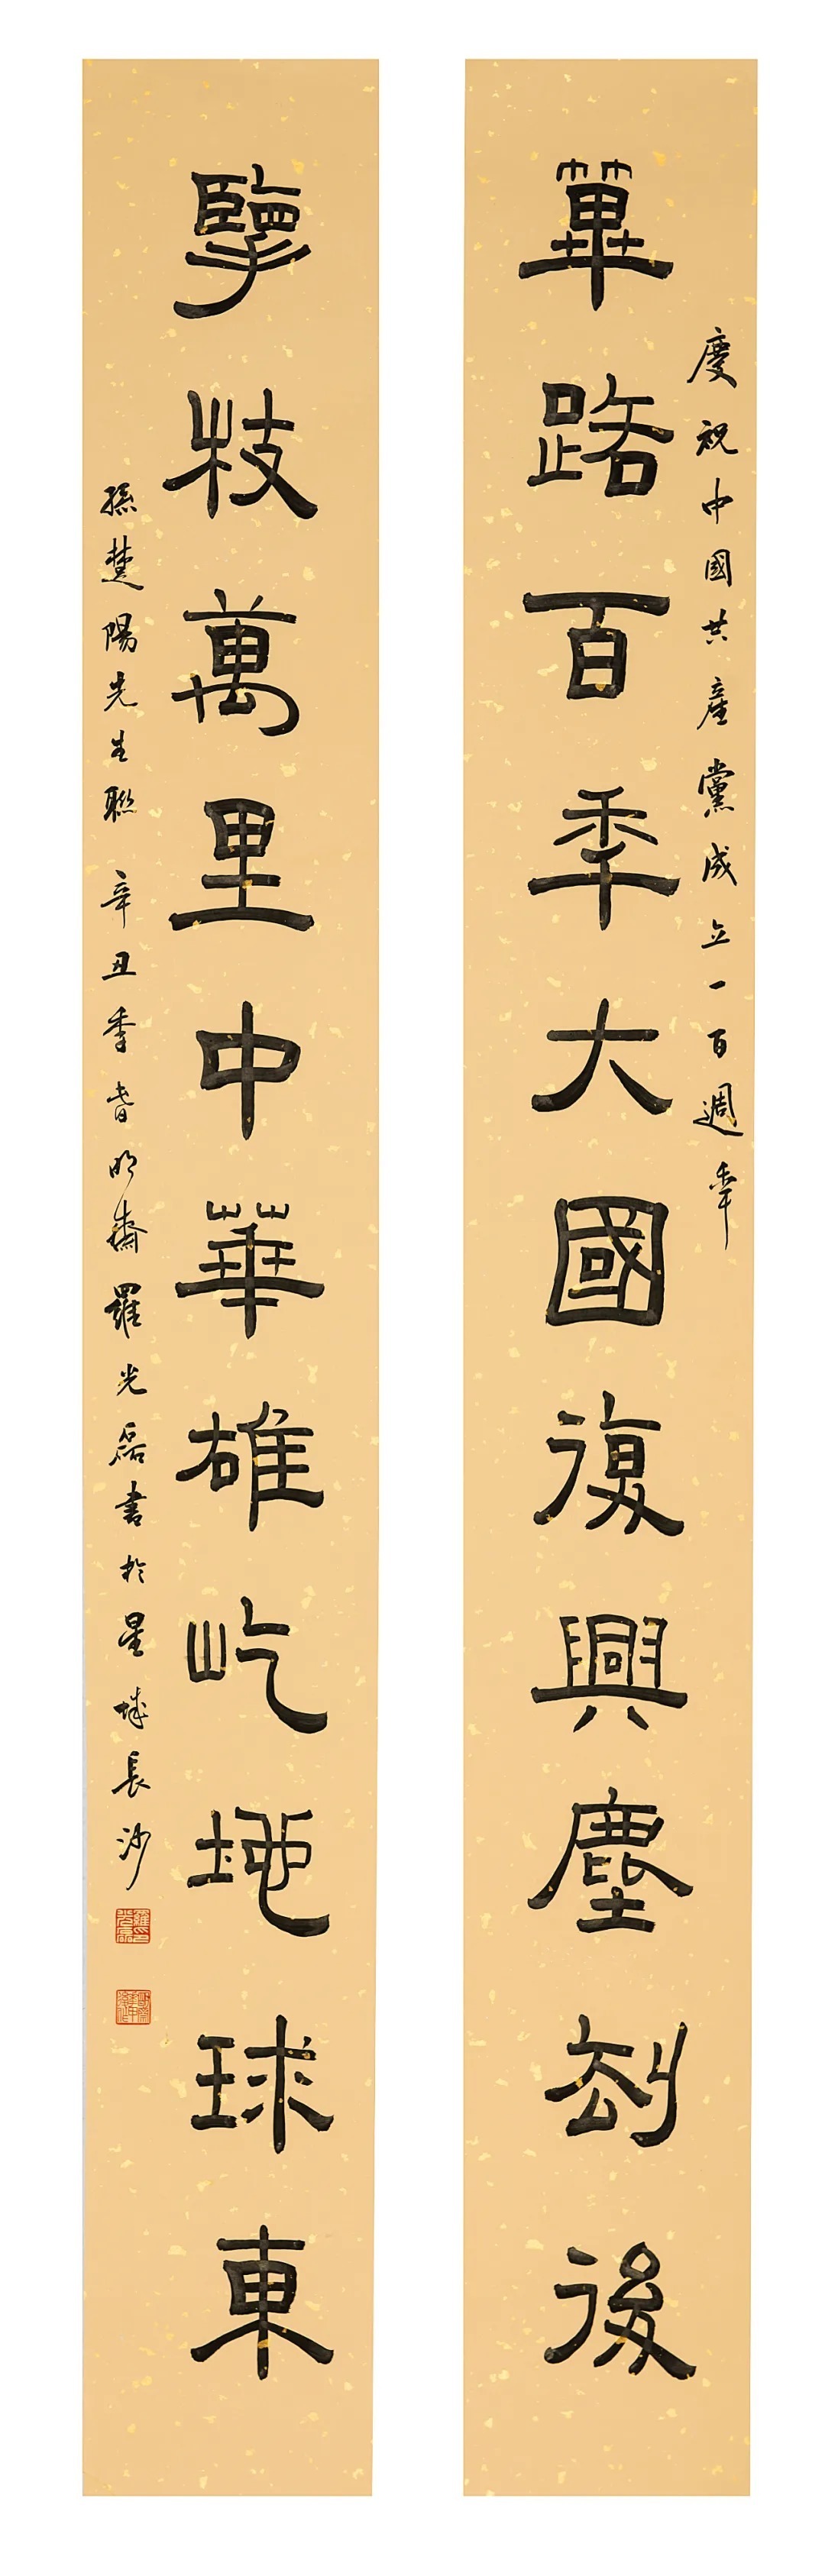 慶祝中國共產黨成立一百週秊
篳路百秊大國復興塵刦後
擥枝萬里中華雄屹地球東
孫楚陽先生聯 辛丑秊旹明齋羅光磊書於星城長沙